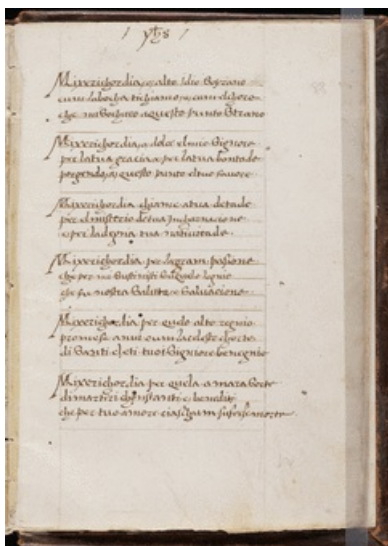 yhs
Mixerichordia, o alto Idio Soprano
cum la bocha ti chiamo, e cum el chore
che me Sochore a questo punto Strano
Mixerichordia, o dolce el mio Signore
per la tua gracia e per la tua bontade
porgendo a questo punto el tuo favore
Mixerichordia chiamo a tua
per el misterio de tua Incarnacione
e per la degna tua nativitade
Mixerichordia per la gram pasione
che per me Sustinisti Sul legno
che fu nostra Salute e Salvacione
Mixerichordia per quelo alto regnio
promeso a nui cum la celeste chorte
di Santi eleti tuoi Signiore benegnio
Mixerichordia per quela amara Sorte
di martiri e benediti
che per tuo amore ciascham soferse morte